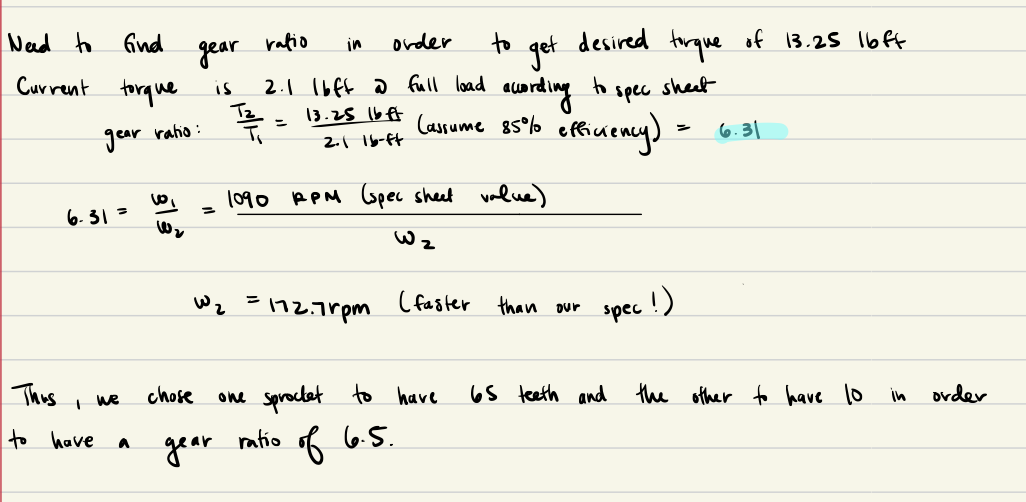 Need to find gear ratio in order to get desired torque of 13.25 lbft
Current torque is 2.1 lbft @ full load acording to spec sheet
gear ratio: T2/T1 = 13.25 lbft / 2.1 lb-ft (assume 85% efficiency) = 6.31
6.31 = ω1/ω2 = 1090 RPM (spec sheet value) / ω2
ω2 = 172.7rpm (faster than our spec!)
Thus, we chose one sprocket to have 65 teeth and the other to have 10 in order
to have a gear ratio of 6.5.